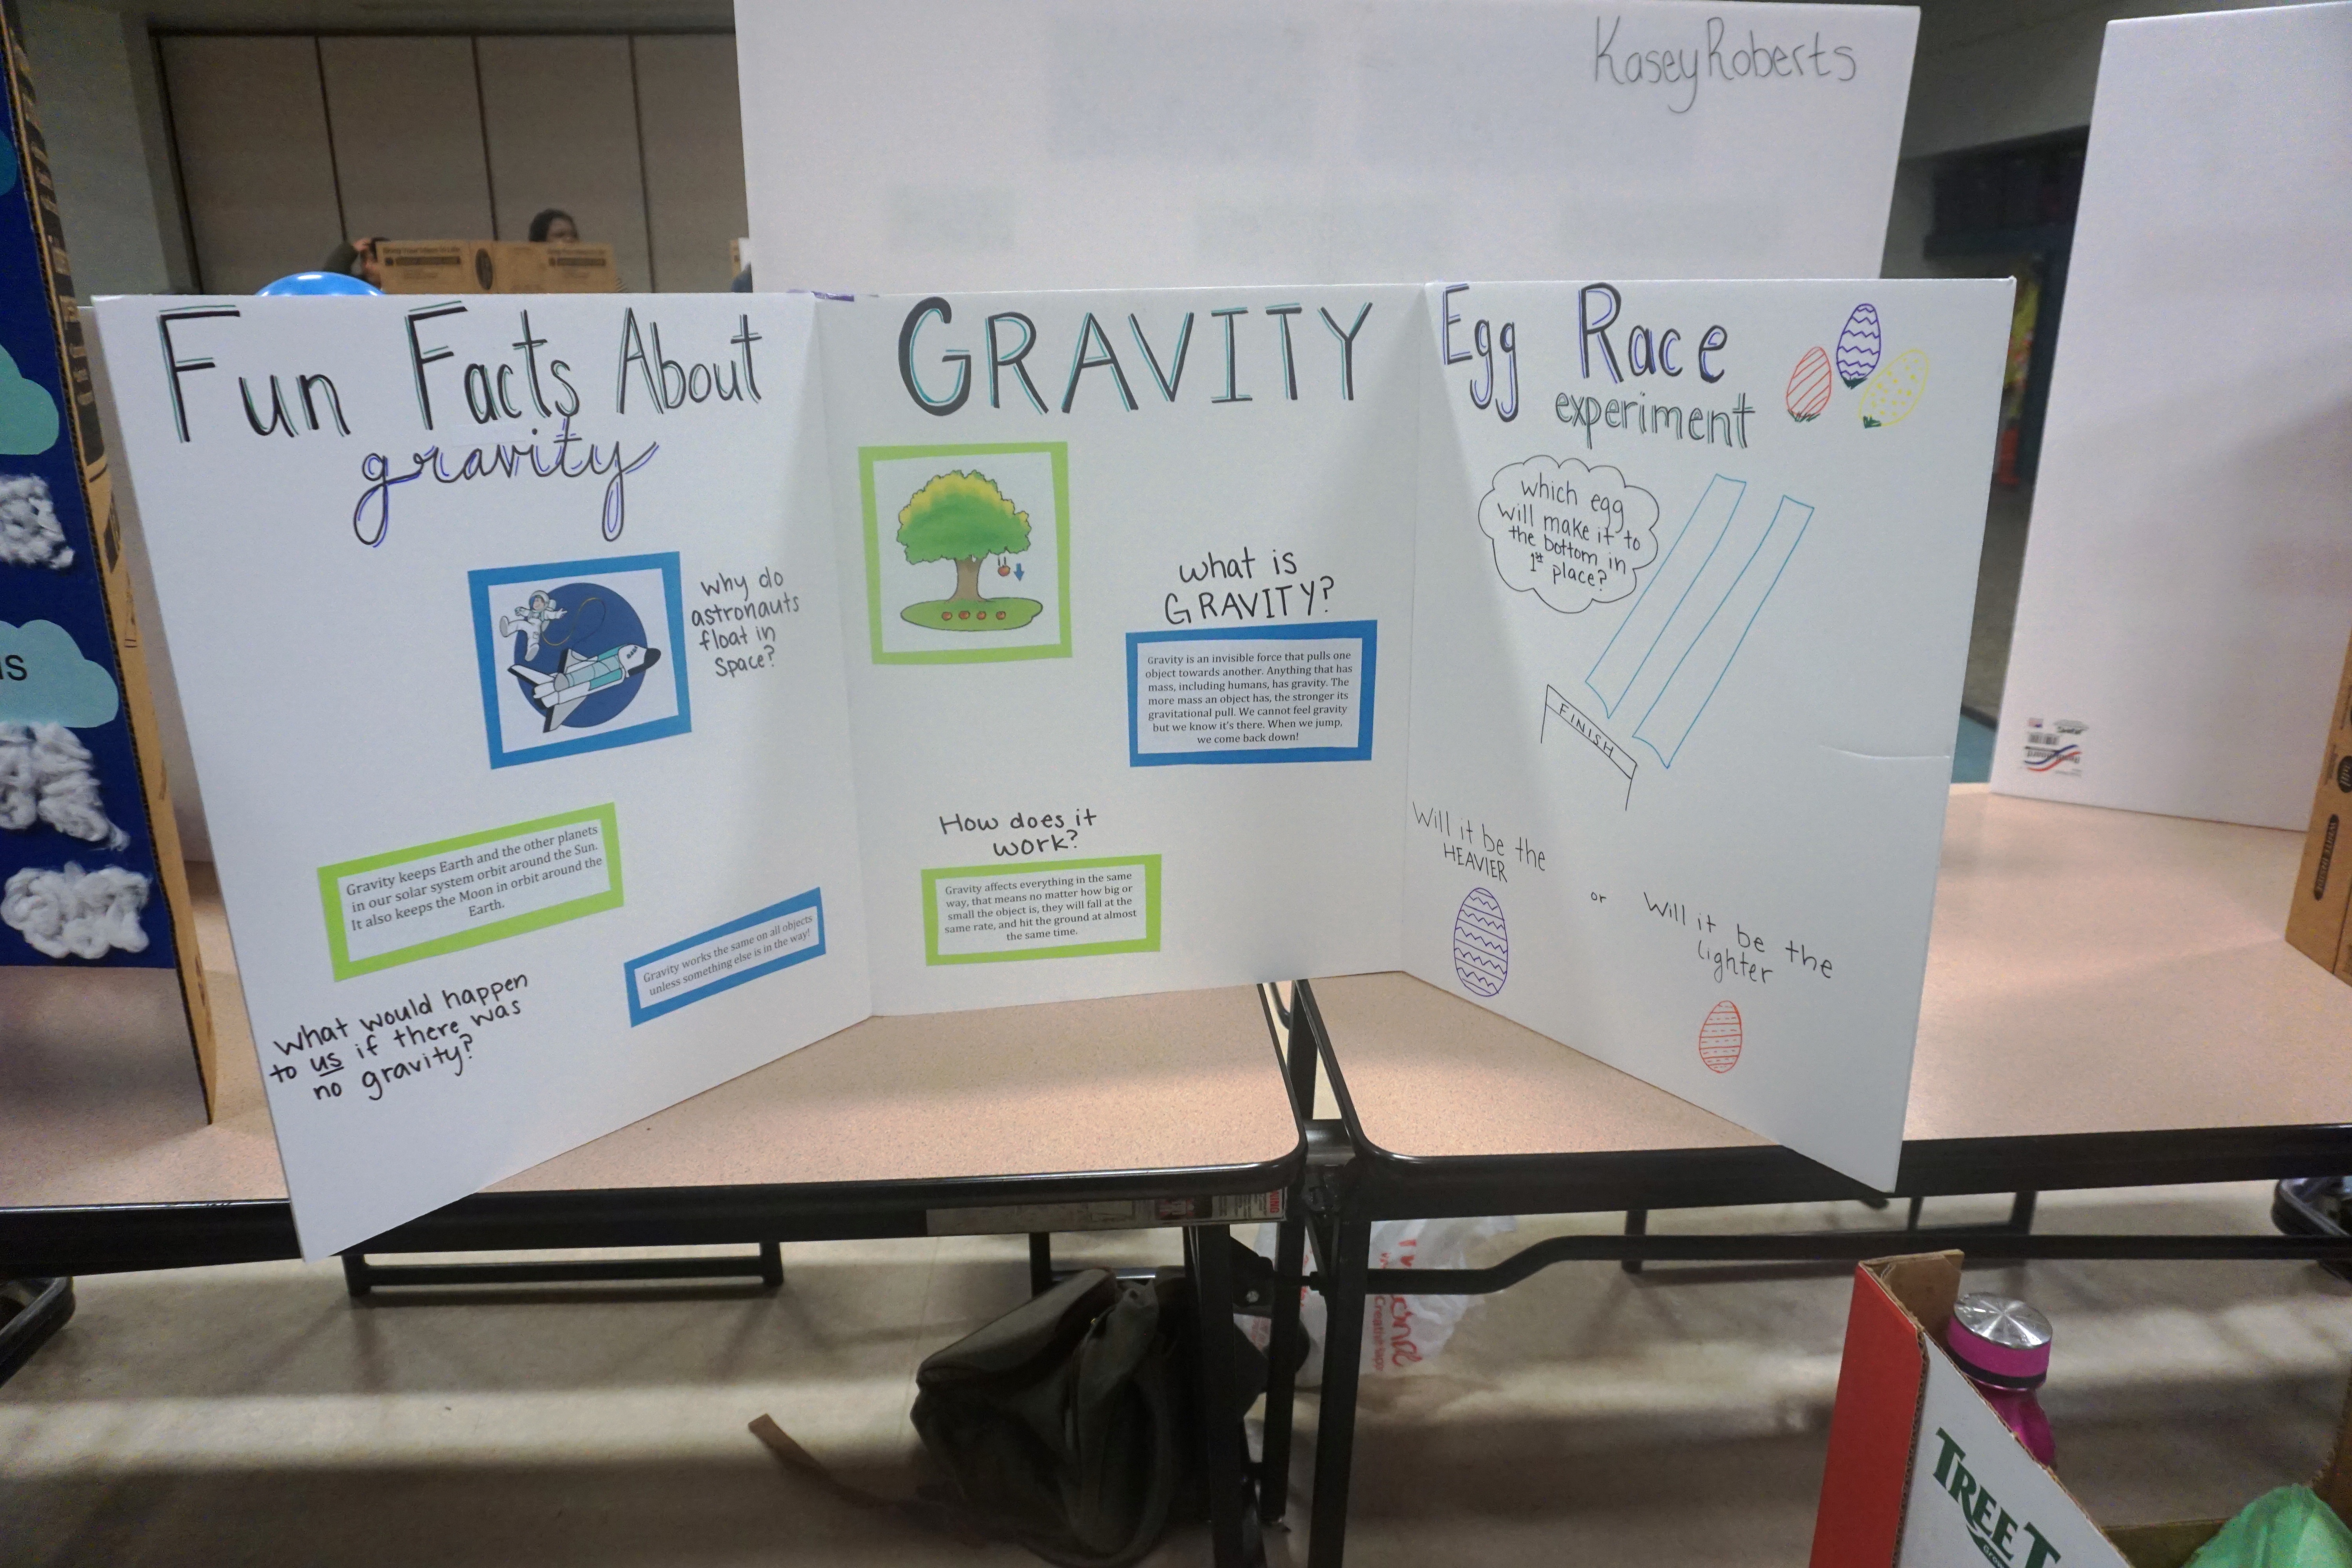 Kasey Roberts
Fun Facts About
gravity
why do
astronauts
float in
space?
Gravity keeps Earth and the other planets
in our solar system orbit around the Sun.
It also keeps the Moon in orbit around the
Earth.
Gravity works the same on all objects
unless something else is in the way!
what would happen
to us if there was
no gravity?
GRAVITY
what is
GRAVITY?
Gravity is an invisible force that pulls one
object towards another. Anything that has
mass, including humans, has gravity. The
more mass an object has, the stronger its
gravitational pull. We cannot feel gravity
but we know it's there. When we jump,
we come back down!
How does it
work?
Gravity affects everything in the same
way, that means no matter how big or
small the object is, they will fall at the
same rate, and hit the ground at almost
the same time.
Egg Race
experiment
which egg
will make it to
the bottom in
1st place?
FINISH
Will it be the
HEAVIER
or
Will it be the
lighter
TREE T